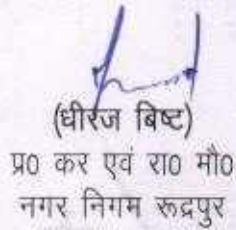 (धीरज बिष्ट)
प्र0 कर एवं रा0 मौ0
नगर निगम रूद्रपुर